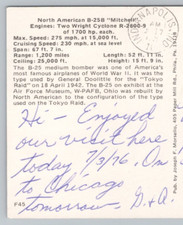 North American B-25B "Mitchell"
Engines: Two Wright Cyclone R-2600-9
of 1700 hp. each.
Max. Speed: 275 mph, at 15,000 ft.
Cruising Speed: 230 mph, at sea level
Span: 67 ft.
Length: 52 ft. 11 in.
Range: 1,200 miles
Height: 15 ft. 9 in.
Ceiling: 25,000 ft.
The B-25 medium bomber was one of America's
most famous airplanes of World War II. It was
the type used by General Doolittle for the "Tokyo
Raid" on 18 April 1942. The B-25B on exhibit in
the Air Force Museum, W-PAFB, Ohio was marked by
North American to the configuration of the used on the
"Tokyo Raid."
Hi - Enjoyed
our visit here
today 7/3/76
to Chicago
tomorrow D. + A.
F45
Pub. by Joseph F.